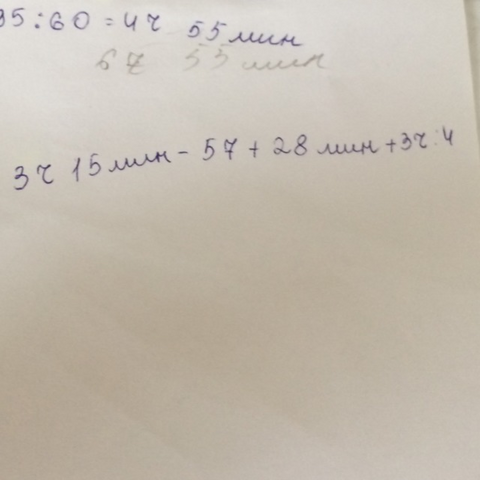 95:60=4ч 55мин
6ч 55мин
3ч 15мин - 57 + 28мин + 3ч:4